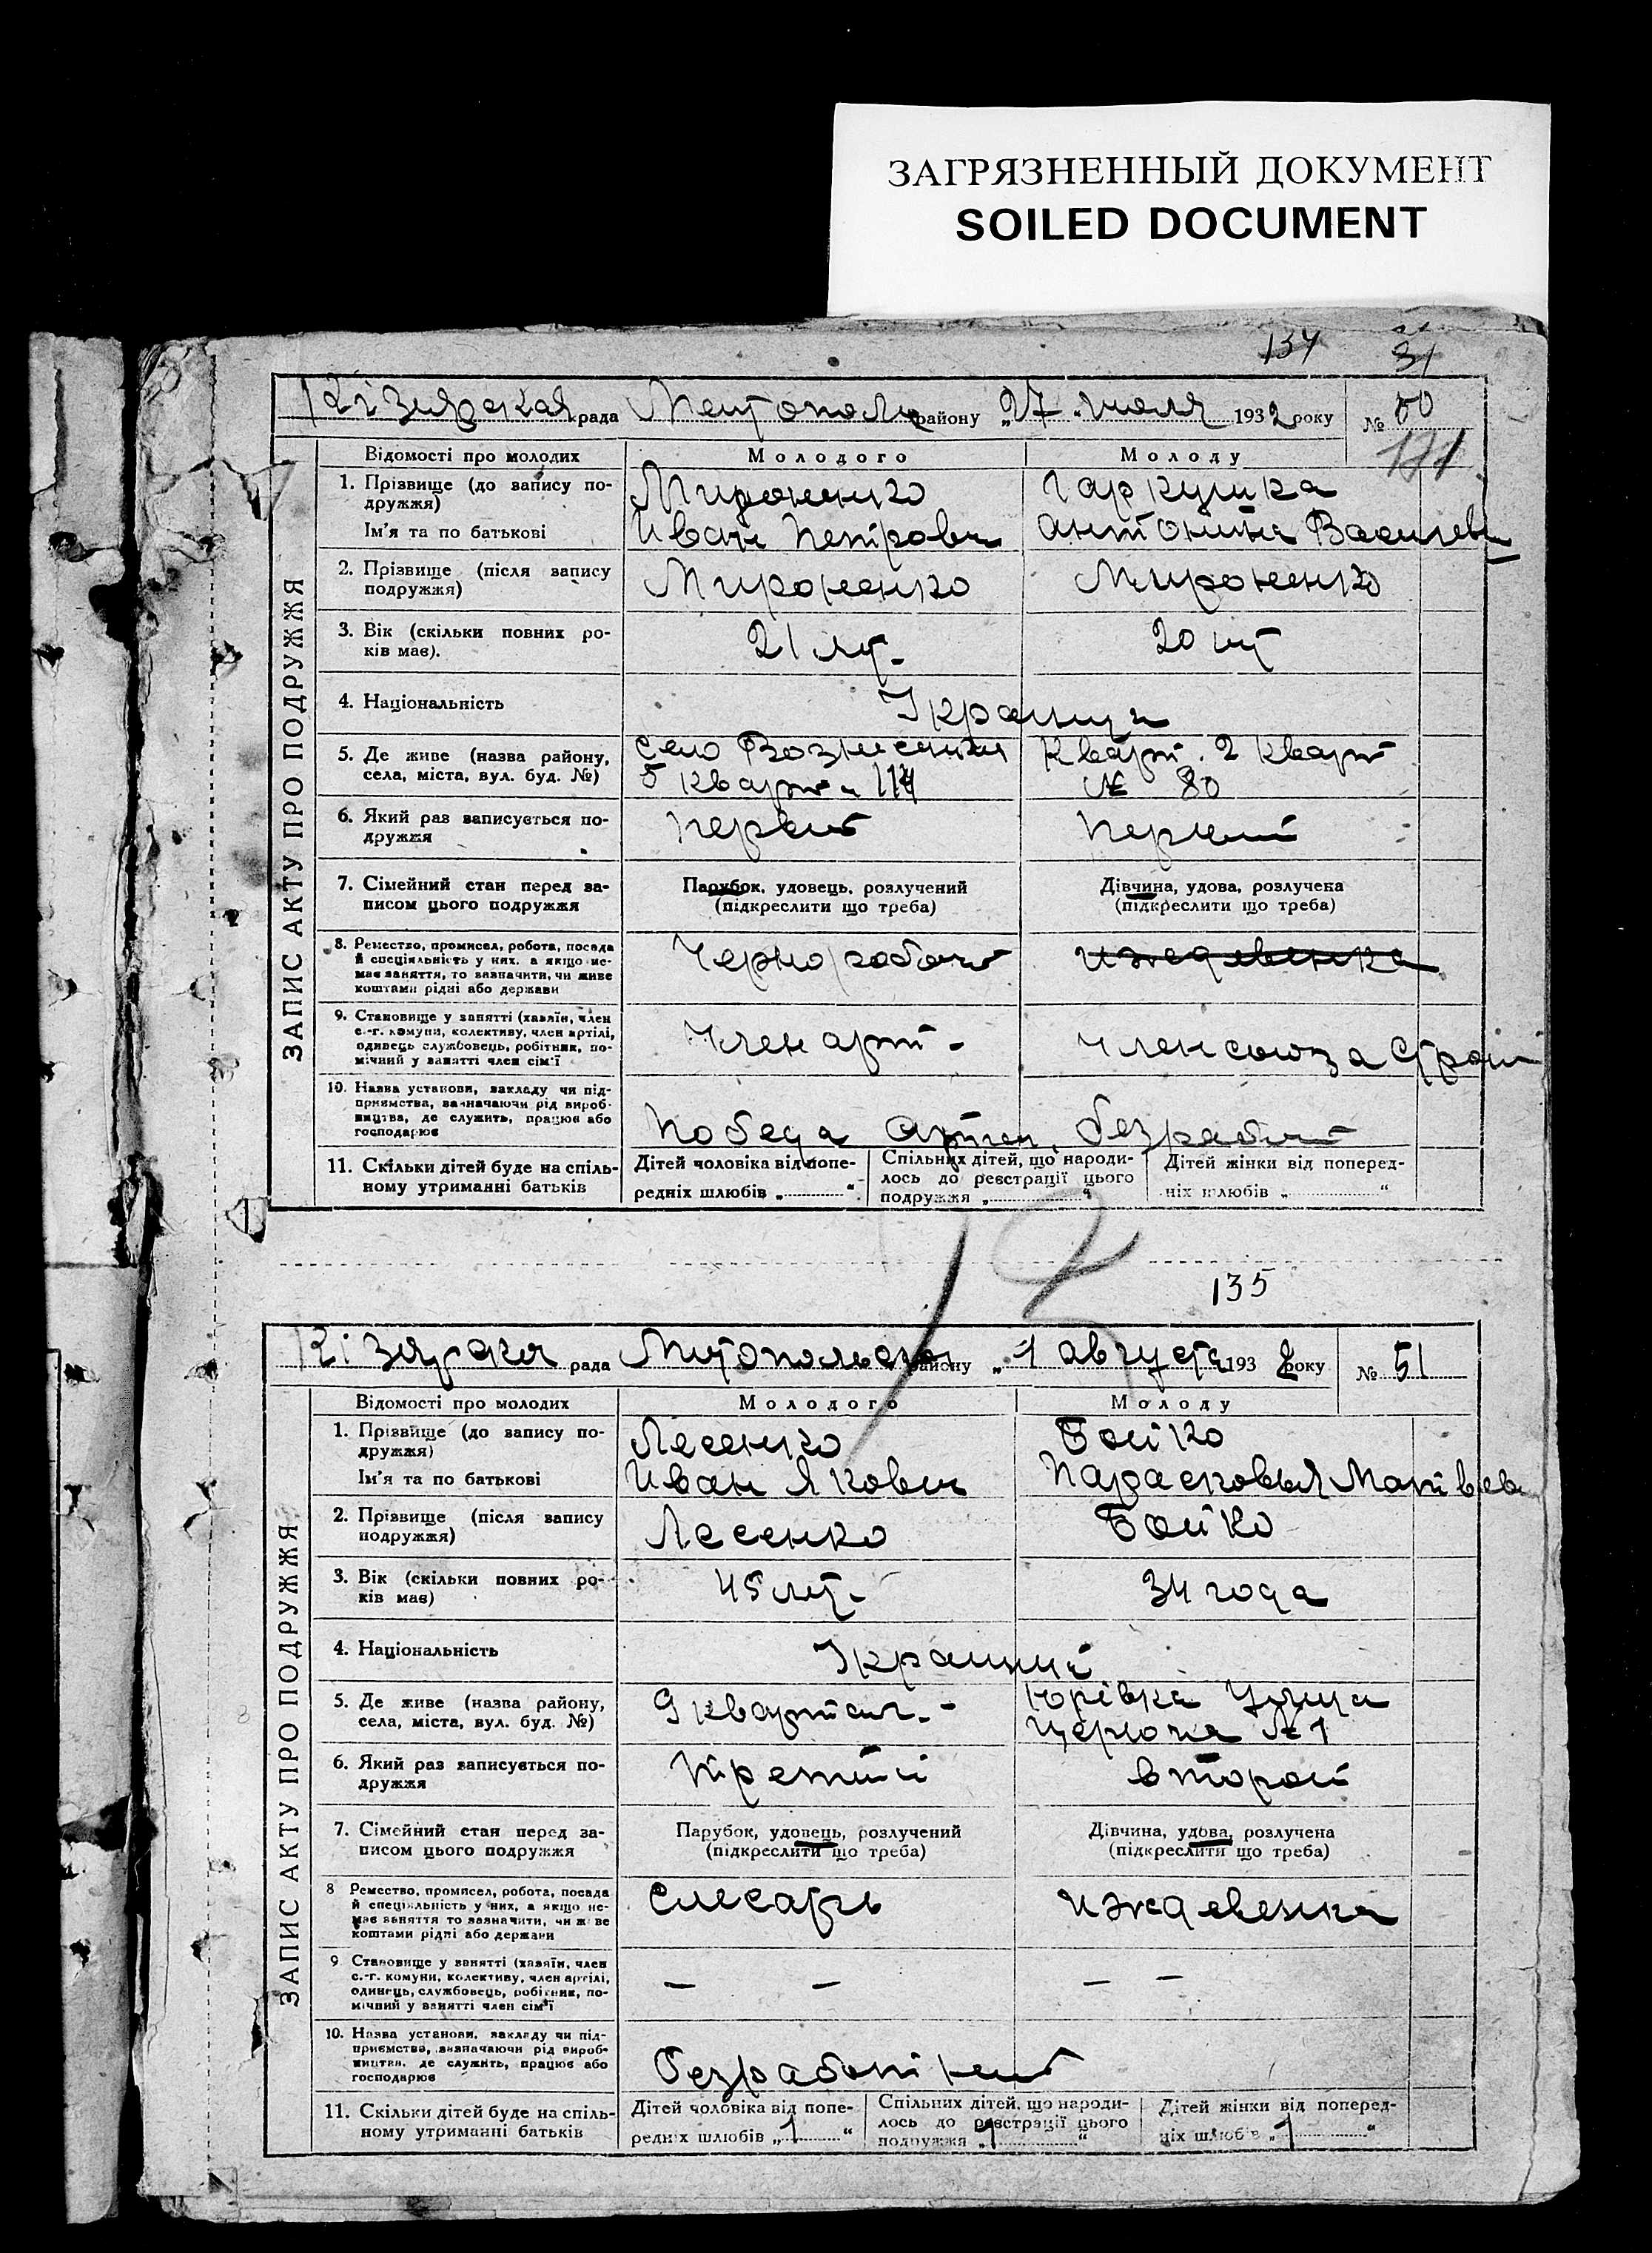 ЗАГРЯЗНЕННЫЙ ДОКУМЕНТ
SOILED DOCUMENT
134
31
Кізиярская рада Мелітополь району „27 июля 1932 року № 50
171
ЗАПИС АКТУ ПРО ПОДРУЖЖЯ
Відомості про молодих Молодого Молоду
1. Прізвище (до запису по-
дружжя) Мироненко Гаркушка
Ім'я та по батькові Иван Петрович Антонина Василев
2. Прізвище (після запису
подружжя) Мироненко Мироненко
3. Вік (скільки повних ро-
ків має). 21 лет 20 лет
4. Національність
5. Де живе (назва району, село Вознесенка Кварт. 2 Кварт
села, міста, вул. буд. №) 5 Кварт № 80
6. Який раз записується по-
дружжя первый первый
7. Сімейний стан перед за- Парубок, удовець, розлучений Дівчина, удова, розлучена
писом цього подружжя (підкреслити що треба) (підкреслити що треба)
8. Ремество, промисел, робота, посада Чернорабоч иждевенка
й спеціяльність у них, а якщо не-
має заняття, то зазначити, чи живе
коштами рідні або держави
9. Становище у занятті (хазяїн, член
с.-г. комуни, колективу, член артілі, Член арт- Член союза
одинець службовець, робітник, по-
мічний у занятті член сім'ї
10. Назва установи, закладу чи під-
приємства, зазначаючи рід вироб-
ництва, де служить, працює або
господарює Победа Артел,
11. Скільки дітей буде на спіль- Дітей чоловіка від попе- Спільних дітей, що народи- Дітей жінки від поперед-
ному утриманні батьків редніх шлюбів „ “ лось до реєстрації цього ніх шлюбів „ “
подружжя „ “
12
135
Кізиярска рада Мелітопольского району „1 августа 1932 року № 51
ЗАПИС АКТУ ПРО ПОДРУЖЖЯ
Відомості про молодих Молодого Молоду
1. Прізвище (до запису по-
дружжя) Лесенко Бойко
Ім'я та по батькові Иван Якович Парасковья Матвев
2. Прізвище (після запису
подружжя) Лесенко Бойко
3. Вік (скільки повних ро-
ків має) 45 лет- 34 года
4. Національність
5. Де живе (назва району, 9 квартал.- Юрівка Улица
села, міста, вул. буд. №) № 1
6. Який раз записується по-
дружжя третий второй
7. Сімейний стан перед за- Парубок, удовець, розлучений Дівчина, удова, розлучена
писом цього подружжя (підкреслити що треба) (підкреслити що треба)
8 Ремество, промисел, робота, посада слесарь иждевенка
й спеціяльність у них, а якщо не-
має заняття то зазначити, чи живе
коштами рідні або держави
9 Становище у занятті (хазяїн, член
с.-г. комуни, колективу, член артілі, — — — —
одинець, службовець, робітник, по-
мічний у занятті член сім'ї
10. Назва установи, закладу чи під-
приємства, зазначаючи рід вироб-
ництва, де служить, працює або
господарює безработный
11. Скільки дітей буде на спіль- Дітей чоловіка від попе- Спільних дітей, що народи- Дітей жінки від поперед-
ному утриманні батьків редніх шлюбів „1“ лось до реєстрації цього ніх шлюбів „1“
подружжя „1“